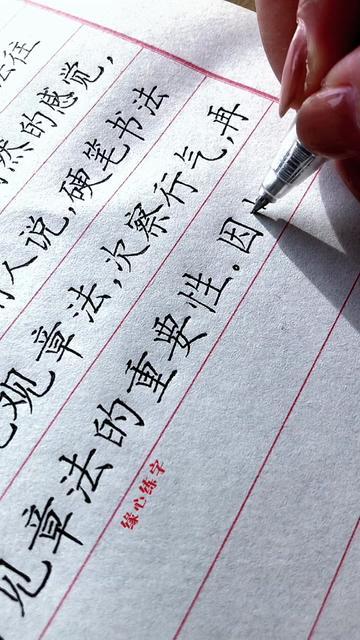 法往
然的感觉，
人说，硬笔书法
观章法，次察行气，再
见章法的重要性。因
缘心练字